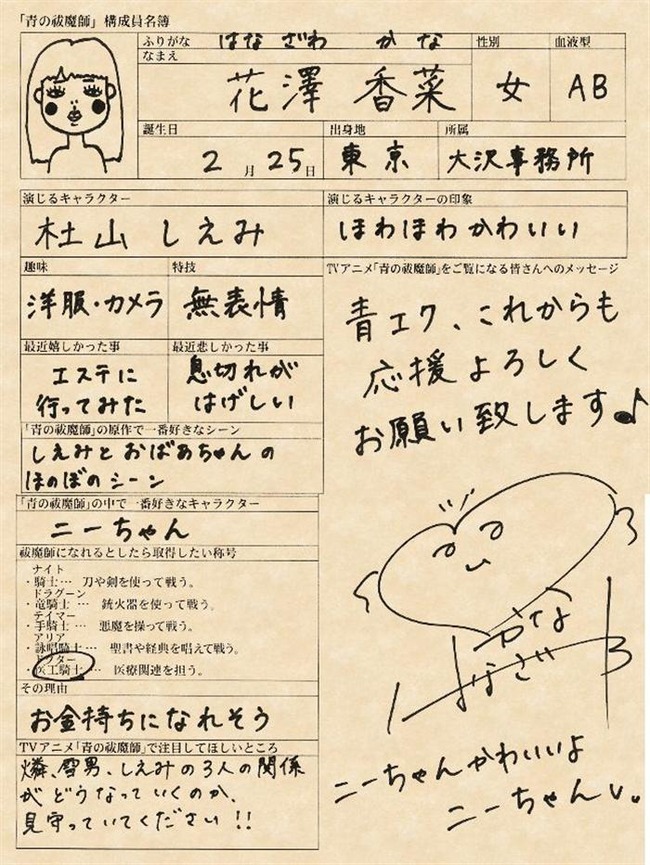 「青の祓魔師」構成員名簿
ふりがな はなざわ かな
なまえ
花澤 香菜
性別
女
血液型
AB
誕生日
2月25日
出身地
東京
所属
大沢事務所
演じるキャラクター
杜山しえみ
演じるキャラクターの印象
ほわほわかわいい
趣味
洋服・カメラ
特技
無表情
最近嬉しかった事
エステに
行ってみた
最近悲しかった事
息切れが
はげしい
「青の祓魔師」の原作で一番好きなシーン
しえみとおばあちゃんの
ほのぼのシーン
「青の祓魔師」の中で一番好きなキャラクター
ニーちゃん
祓魔師になれるとしたら取得したい称号
ナイト
・騎士… 刀や剣を使って戦う。
ドラグーン
・竜騎士… 銃火器を使って戦う。
テイマー
・手騎士… 悪魔を操って戦う。
アリア
・詠唱騎士… 聖書や経典を唱えて戦う。
ドクター
・医工騎士… 医療関連を担う。
その理由
お金持ちになれそう
TVアニメ「青の祓魔師」で注目してほしいところ
燐、雪男、しえみの3人の関係
がどうなっていくのか、
見守っていてください!!
TVアニメ「青の祓魔師」をご覧になる皆さんへのメッセージ
青エク、これからも
応援よろしく
お願い致します♪
かな
はなざわ
ニーちゃんかわいいよ
ニーちゃん